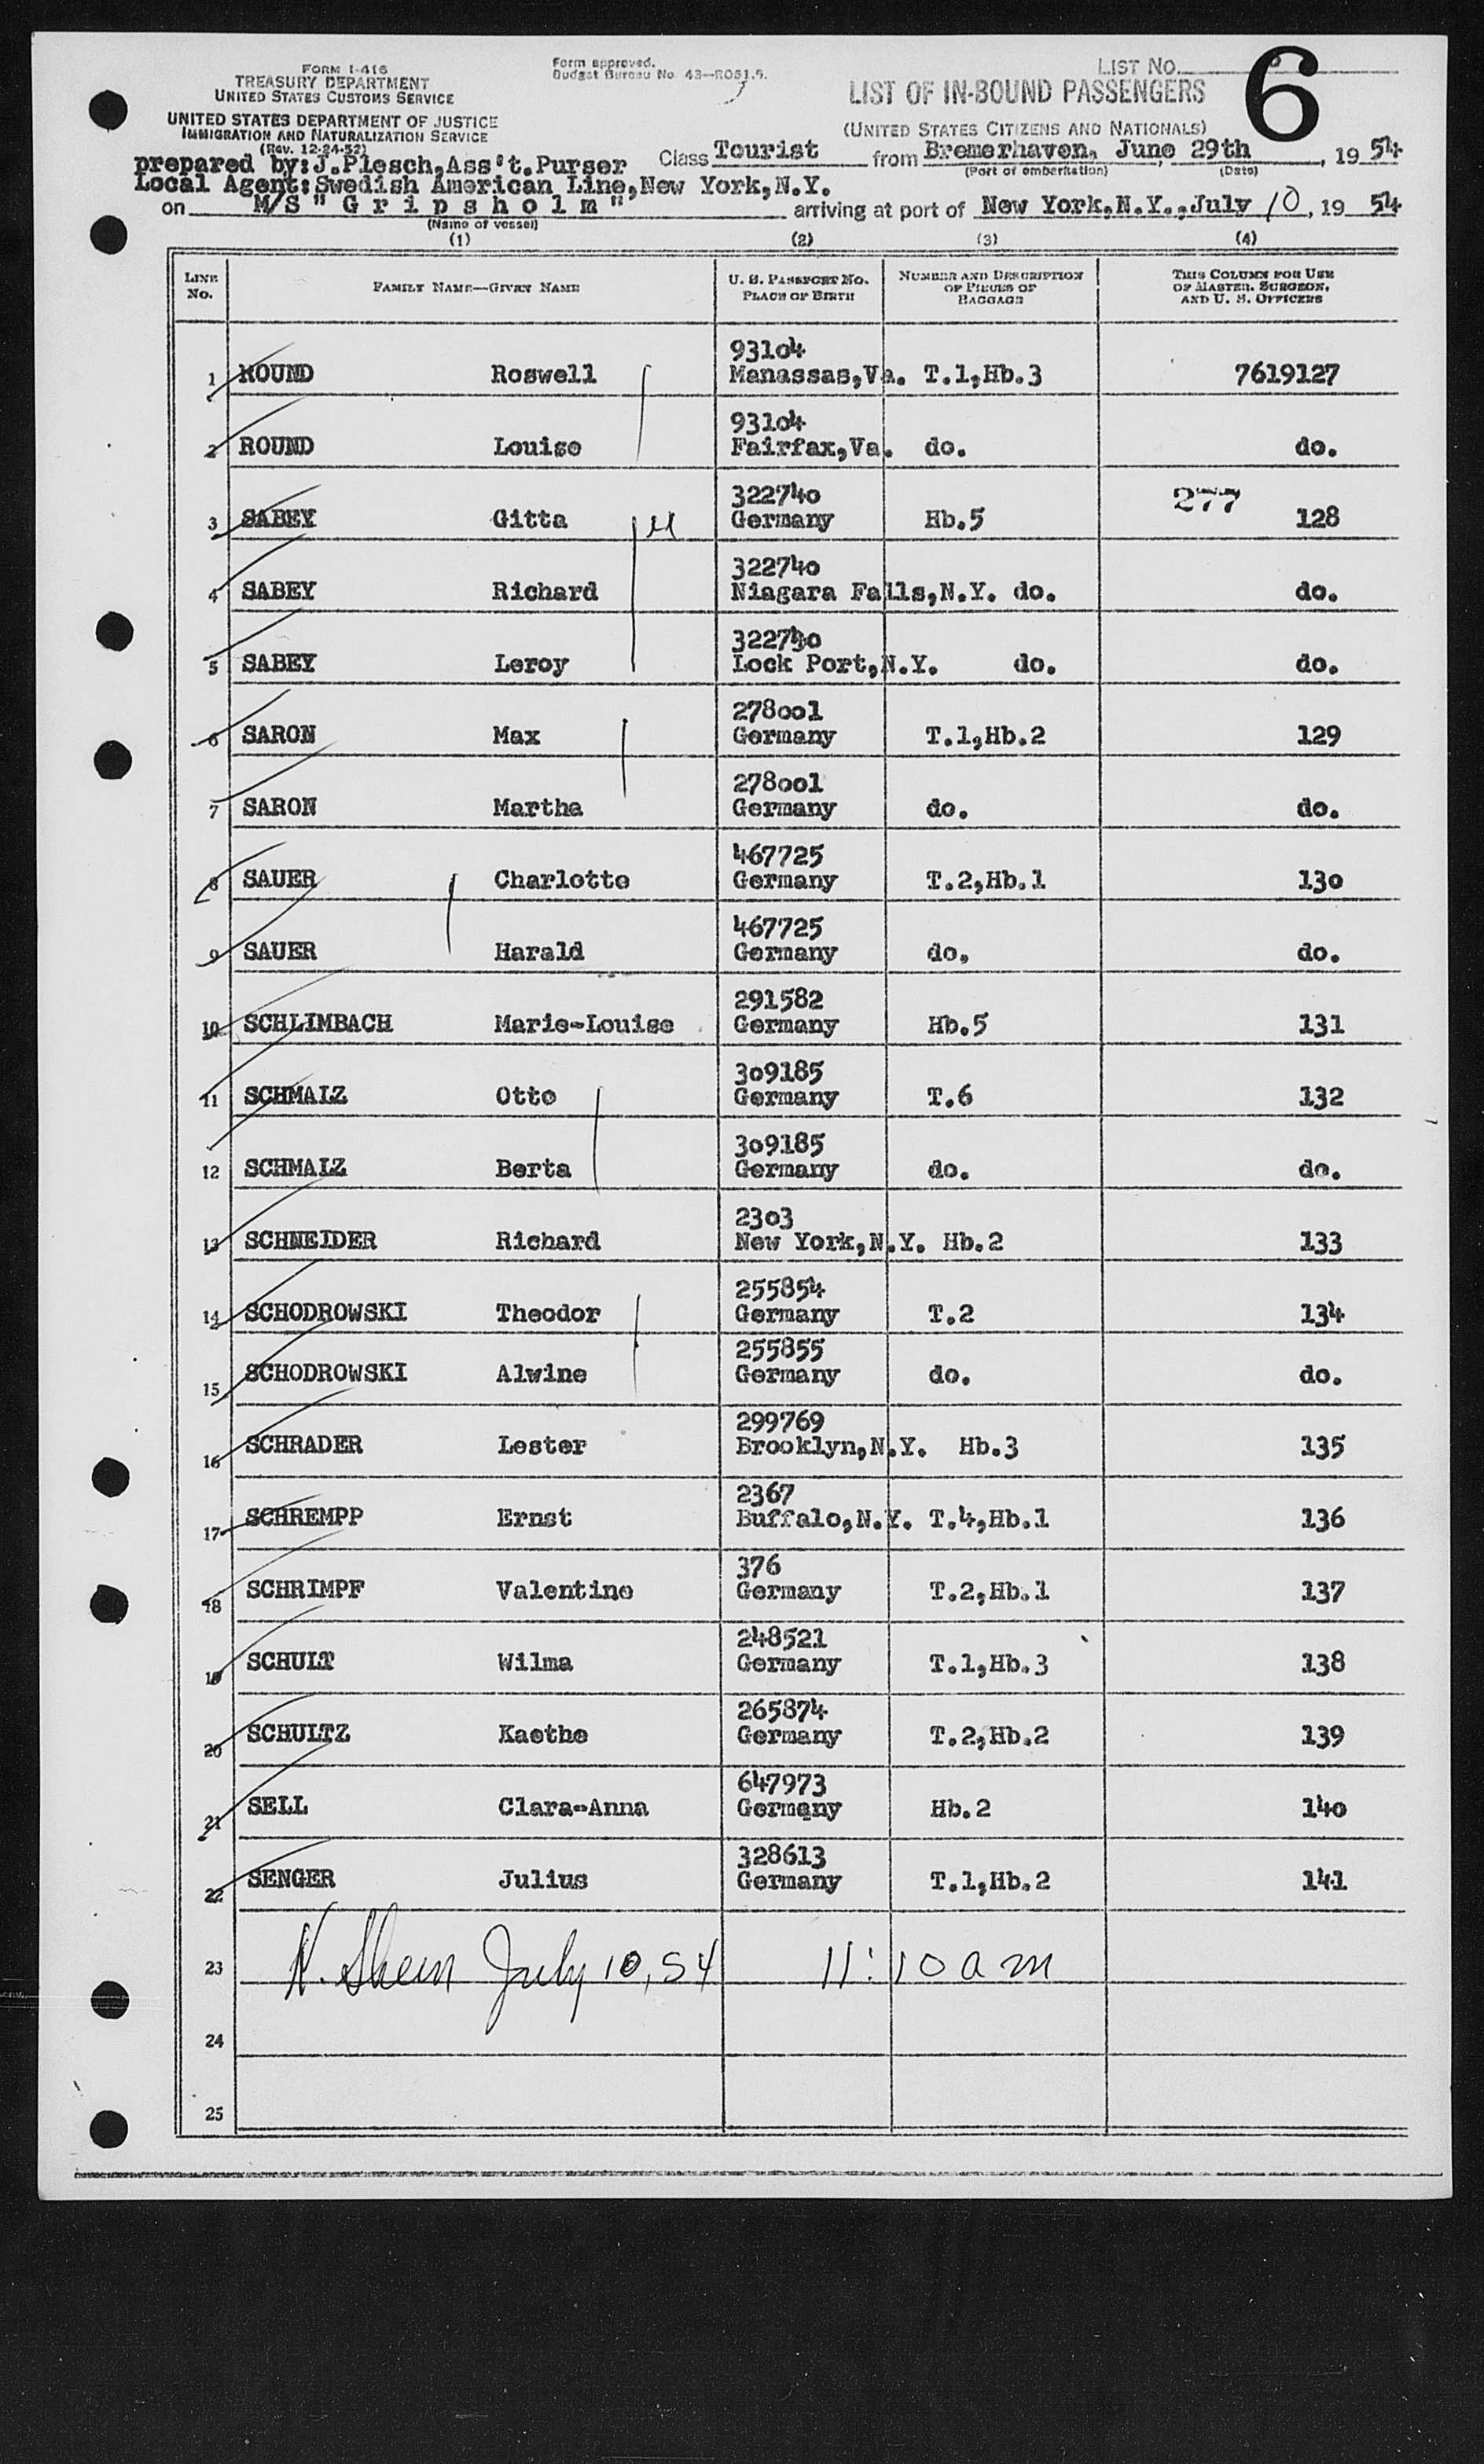 FORM I-416
TREASURY DEPARTMENT
UNITED STATES CUSTOMS SERVICE
UNITED STATES DEPARTMENT OF JUSTICE
IMMIGRATION AND NATURALIZATION SERVICE
(Rev. 12-24-52)
Form approved.
Budget Bureau No. 43—R051.5.
LIST NO.
6
LIST OF IN-BOUND PASSENGERS
(UNITED STATES CITIZENS AND NATIONALS)
prepared by:J.Plesch,Ass't.Purser Class Tourist from Bremerhaven, June 29th, 1954
(Port of embarkation) (Date)
Local Agent:Swedish American Line,New York,N.Y.
on M/S "Gripsholm" arriving at port of New York,N.Y.,July 10, 1954
(Name of vessel)
(1) (2) (3) (4)
LINE No. FAMILY NAME—GIVEN NAME U. S. PASSPORT NO. PLACE OF BIRTH NUMBER AND DESCRIPTION OF PIECES OF BAGGAGE THIS COLUMN FOR USE OF MASTER, SURGEON, AND U. S. OFFICERS
93104
1 ROUND Roswell Manassas,Va. T.1,Hb.3 7619127
93104
2 ROUND Louise Fairfax,Va. do. do.
322740 277
3 SABEY Gitta Germany Hb.5 128
322740
4 SABEY Richard Niagara Falls,N.Y. do. do.
322740
5 SABEY Leroy Lock Port,N.Y. do. do.
278001
6 SARON Max Germany T.1,Hb.2 129
278001
7 SARON Martha Germany do. do.
467725
8 SAUER Charlotte Germany T.2,Hb.1 130
467725
9 SAUER Harald Germany do. do.
291582
10 SCHLIMBACH Marie-Louise Germany Hb.5 131
309185
11 SCHMALZ Otto Germany T.6 132
309185
12 SCHMALZ Berta Germany do. do.
2303
13 SCHNEIDER Richard New York,N.Y. Hb.2 133
255854
14 SCHODROWSKI Theodor Germany T.2 134
255855
15 SCHODROWSKI Alwine Germany do. do.
299769
16 SCHRADER Lester Brooklyn,N.Y. Hb.3 135
2367
17 SCHREMPP Ernst Buffalo,N.Y. T.4,Hb.1 136
376
18 SCHRIMPF Valentine Germany T.2,Hb.1 137
248521
19 SCHULT Wilma Germany T.1,Hb.3 138
265874
20 SCHULTZ Kaethe Germany T.2,Hb.2 139
647973
21 SELL Clara-Anna Germany Hb.2 140
328613
22 SENGER Julius Germany T.1,Hb.2 141
23 July 10, 54 11:10 am
24
25